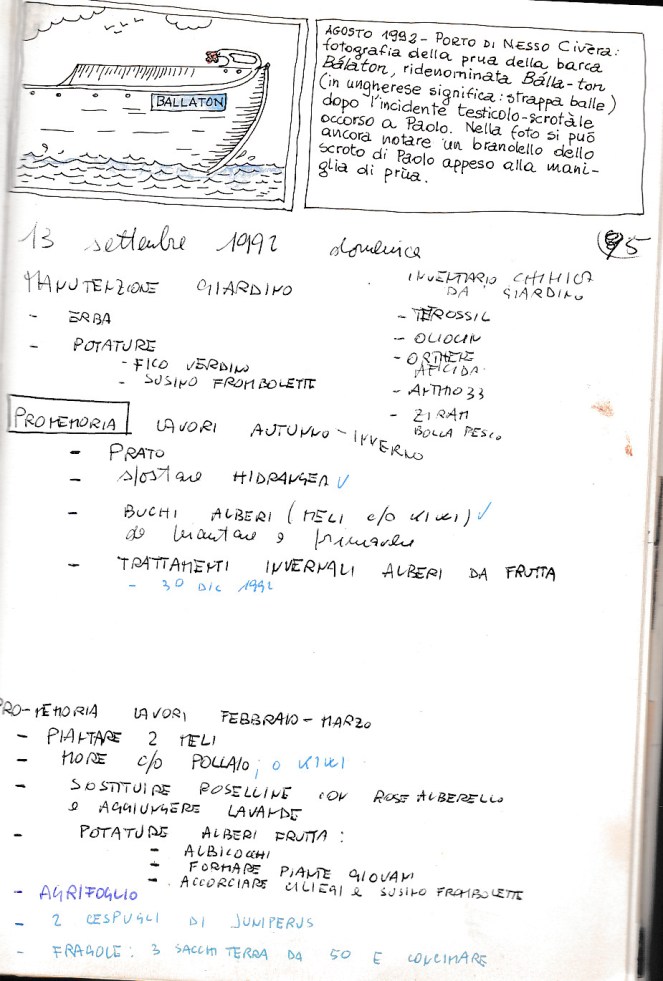 BALLATON
AGOSTO 1992 - PORTO DI NESSO CIVERA:
fotografia della prua della barca
Bálaton, ridenominata Bálla-ton
(in ungherese significa: strappa balle)
dopo l'incidente testicolo-scrotàle
occorso a Paolo. Nella foto si può
ancora notare un brandello dello
scroto di Paolo appeso alla mani-
glia di prua.
13 settembre 1992 domenica 95
MANUTENZIONE GIARDINO
- ERBA
- POTATURE
- FICO VERDINO
- SUSINO FROMBOLETTE
INVENTARIO CHIMICA
DA GIARDINO
- TEROSSIL
- OLIOCIN
- ORTHENE
AFICIDA
- ANTHIO 33
- ZIRAM
BOLLA PESCO
PROMEMORIA LAVORI AUTUNNO-INVERNO
- PRATO
- spostare HIDRANGEA √
- BUCHI ALBERI (MELI c/o KIWI) √
da piantare a primavera
- TRATTAMENTI INVERNALI ALBERI DA FRUTTA
- 30 DIC 1992
PRO-MEMORIA LAVORI FEBBRAIO-MARZO
- PIANTARE 2 MELI
- MORE c/o POLLAIO; o KIWI
- SOSTITUIRE ROSELLINE CON ROSE ALBERELLO
e AGGIUNGERE LAVANDE
- POTATURE ALBERI FRUTTA:
- ALBICOCCHI
- FORMARE PIANTE GIOVANI
- ACCORCIARE CILIEGI e SUSINO FROMBOLETTE
- AGRIFOGLIO
- 2 CESPUGLI DI JUNIPERUS
- FRAGOLE: 3 SACCHI TERRA DA 50 E CONCIMARE